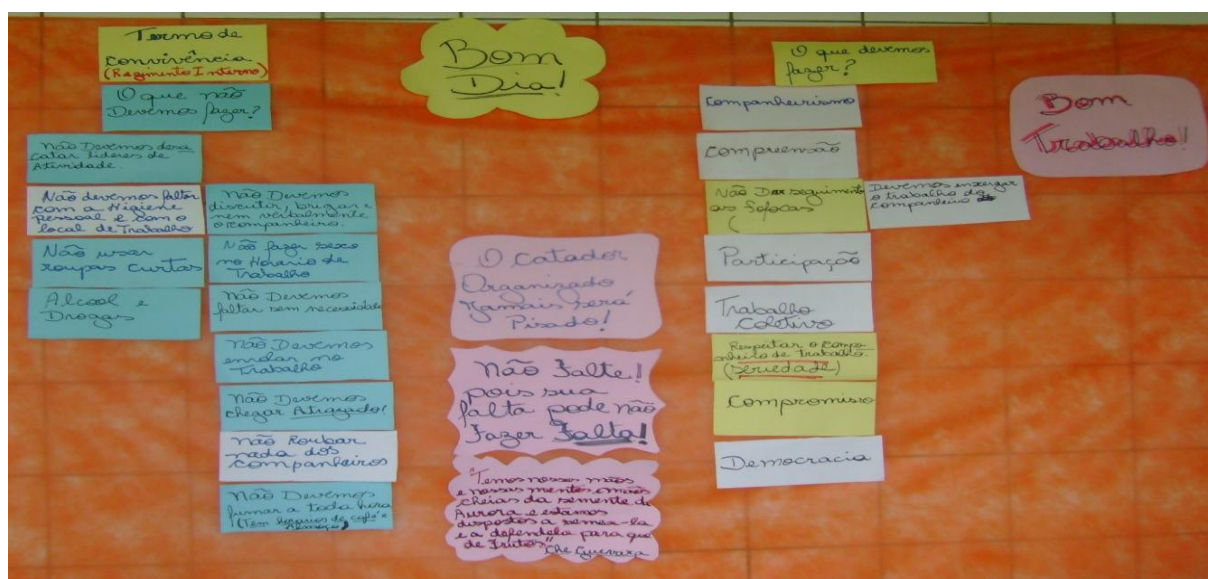 Termo de
convivência
(Regimento Interno)
O que não
Devemos fazer?
Não Devemos desa
catar lideres de
Atividade.
Não devemos faltar
com a Higiene
Pessoal e com o
local de Trabalho
Não usar
roupas curtas
Alcool e
Drogas
Não Devemos
discutir, brigar e
nem verbalmente
o companheiro.
Não fazer sexo
no Horario de
Trabalho
Não Devemos
faltar sem necessidade
Não Devemos
enrolar no
Trabalho
Não Devemos
chegar Atrazado!
Não Roubar
nada dos
companheiros
Não Devemos
fumar a toda hora
(Tem horarios de café e
Almoço)
Bom
Dia!
O catador
Organizado
Jamais será
Pisado!
Não Falte!
pois sua
falta pode não
Fazer Falta!
"Temos nossas mãos
e nossas mentes
cheias da semente da
Aurora e estamos
dispostos a semea-la
e a defendela para que
de Frutos"
Che Guevara
O que devemos
fazer?
Companheirismo
Compreensão
Não Dar seguimento
as fofocas
(
Devemos enxergar
o trabalho do
companheiro
Participação
Trabalho
Coletivo
Respeitar o compa-
nheiro de Trabalho.
(Seriedade)
Compromisso
Democracia
Bom
Trabalho!!